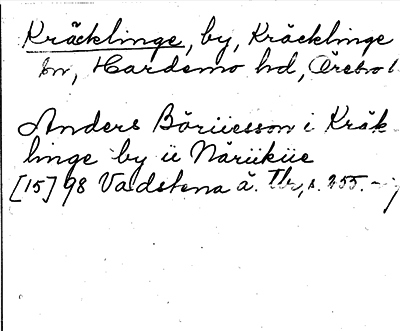 Kräcklinge, by, Kräcklinge
sn, Hardemo hd, Örebro l
Anders Böriiesson i Kräk
linge by ii Näriikiie
[15]98 Vadstena ä. Tb, s. 255.